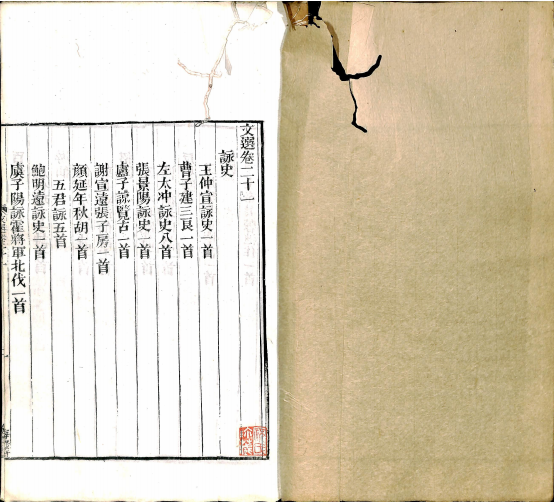 文選卷二十一
詠史
王仲宣詠史一首
曹子建三良一首
左太冲詠史八首
張景陽詠史一首
盧子諒覽古一首
謝宣遠張子房一首
顔延年秋胡一首
五君詠五首
鮑明遠詠史一首
虞子陽詠霍將軍北伐一首